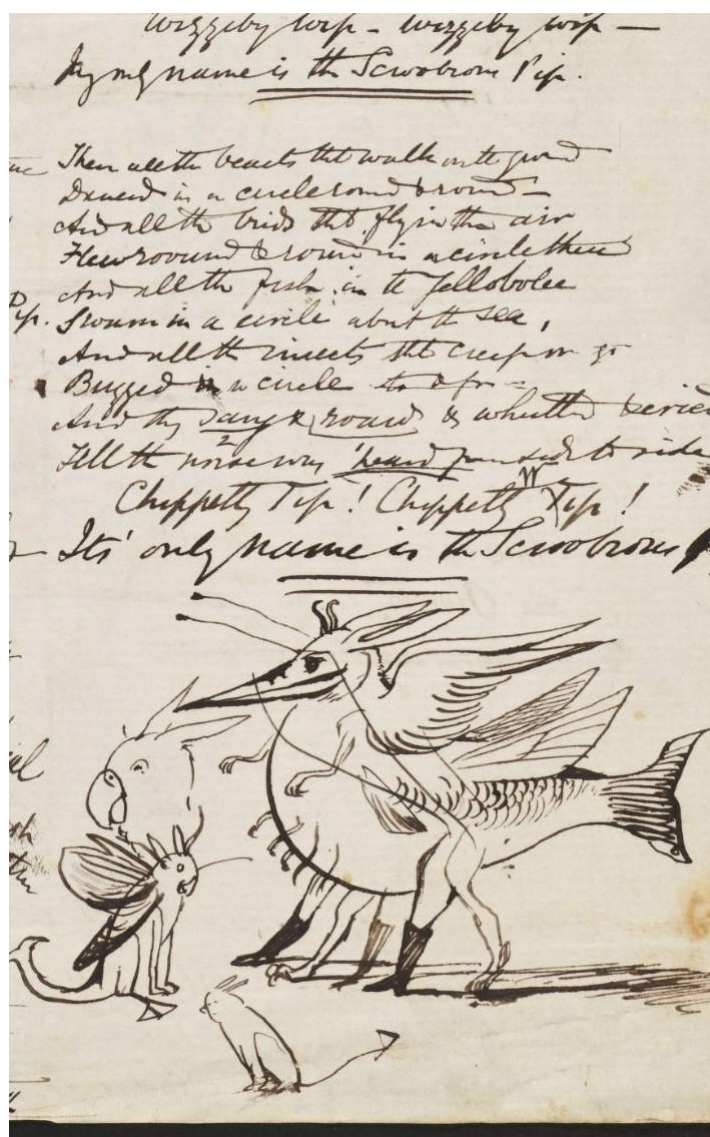 Wizzeby wip – wizzeby wip –
My only name is the Scroobious Pip.
Then all the beasts that walk on the ground
Danced in a circle round & round –
And all the birds that fly in the air
Flew round & round in a circle there
And all the fish in the Jellybolee
Pip. Swum in a circle about the sea,
And all the insects that creep or go
Buzzed in a circle to & fro –
And they sang & roard & whistled & cried
Till the noise was heard from side to side
Chippetty Tip! Chippetty Tip!
Its' only name is the Scroobious